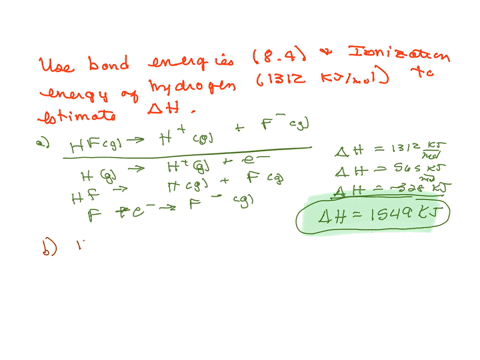 Use bond energies (8.4) & Ionization
energy of hydrogen (1312 KJ/mol) to
estimate ΔH.
a) HF(g) → H⁺(g) + F⁻(g)
H(g) → H⁺(g) + e⁻ ΔH = 1312 KJ/mol
HF → H(g) + F(g ΔH = 565 KJ/mol
F + e⁻ → F⁻(g) ΔH = -328 KJ
ΔH = 1549 KJ
b)